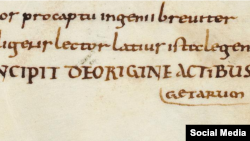 or procaptu ingenii breviter
ligens lector latius iste legen
NCIPIT DEORIGINE ACTIBUS
GETARUM
Social Media